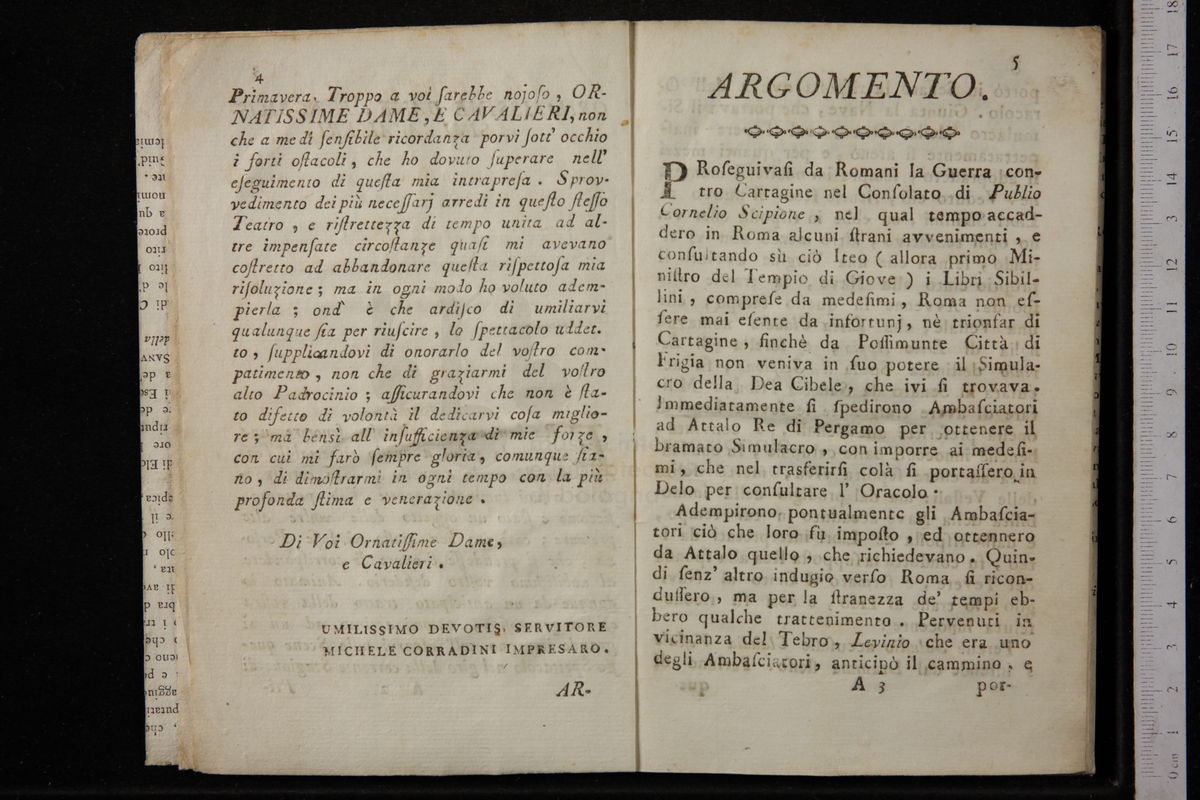 4
Primavera. Troppo a voi ſarebbe nojoſo, OR-
NATISSIME DAME, E CAVALIERI, non
che a me di ſenſibile ricordanza porvi ſott' occhio
i forti oſtacoli, che ho dovuto ſuperare nell'
eſeguimento di queſta mia intrapreſa. Sprov-
vedimento dei più neceſſarj arredi in queſto ſteſſo
Teatro, e riſtrettezza di tempo unita ad al-
tre impenſate circoſtanze quaſi mi avevano
coſtretto ad abbandonare queſta riſpettoſa mia
riſoluzione; ma in ogni modo ho voluto adem-
pierla; ond' è che ardiſco di umiliarvi
qualunque ſia per riuſcire, lo ſpettacolo uddet.
to, ſupplicandovi di onorarlo del voſtro com-
patimento, non che di graziarmi del voſtro
alto Padrocinio; aſſicurandovi che non è ſta-
to difetto di volontà il dedicarvi coſa miglio-
re; ma bensì all' inſufficienza di mie forze,
con cui mi farò ſempre gloria, comunque ſia-
no, di dimoſtrarmi in ogni tempo con la più
profonda ſtima e venerazione.
Di Voi Ornatiſſime Dame,
e Cavalieri.
UMILISSIMO DEVOTIS. SERVITORE
MICHELE CORRADINI IMPRESARO.
AR-
5
ARGOMENTO.
PRoſeguivaſi da Romani la Guerra con-
tro Cartagine nel Conſolato di Publio
Cornelio Scipione, nel qual tempo accad-
dero in Roma alcuni ſtrani avvenimenti, e
conſultando sù ciò Iteo (allora primo Mi-
niſtro del Tempio di Giove) i Libri Sibil-
lini, compreſe da medeſimi, Roma non eſ-
ſere mai eſente da infortunj, nè trionfar di
Cartagine, finchè da Poſſimunte Città di
Frigia non veniva in ſuo potere il Simula-
cro della Dea Cibele, che ivi ſi trovava.
Immediatamente ſi ſpedirono Ambaſciatori
ad Attalo Re di Pergamo per ottenere il
bramato Simulacro, con imporre ai medeſi-
mi, che nel trasferirſi colà ſi portaſſero in
Delo per conſultare l' Oracolo.
Adempirono pontualmente gli Ambaſcia-
tori ciò che loro fù impoſto, ed ottennero
da Attalo quello, che richiedevano. Quin-
di ſenz' altro indugio verſo Roma ſi ricon-
duſſero, ma per la ſtranezza de' tempi eb-
bero qualche trattenimento. Pervenuti in
vicinanza del Tebro, Levinio che era uno
degli Ambaſciatori, anticipò il cammino, e
A 3
por-